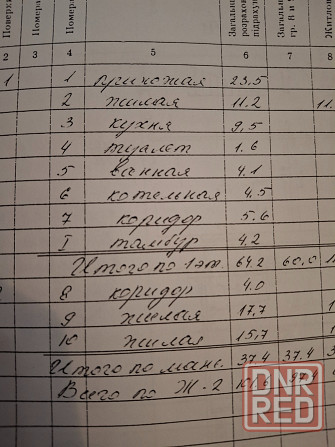 Поверхи
Номера
Номера
Загальна
розрахов
підрахун
Загальна
гр. 8 и 9
Житлова
2 3 4 5 6 7 8
1 1 прихожая 23,5
2 жилая 11.2 11.
3 кухня 9,5
4 туалет 1.6
5 ванная 4.1
6 котельная 4.5
7 коридор 5.6
I тамбур 4.2
Итого по 1 эт. 64.2 60,0
8 коридор 4.0
9 жилая 17,7
10 жилая 15,7
Итого по манс. 37.4 37.4 3
Всего по Ж-2
DNR
RED